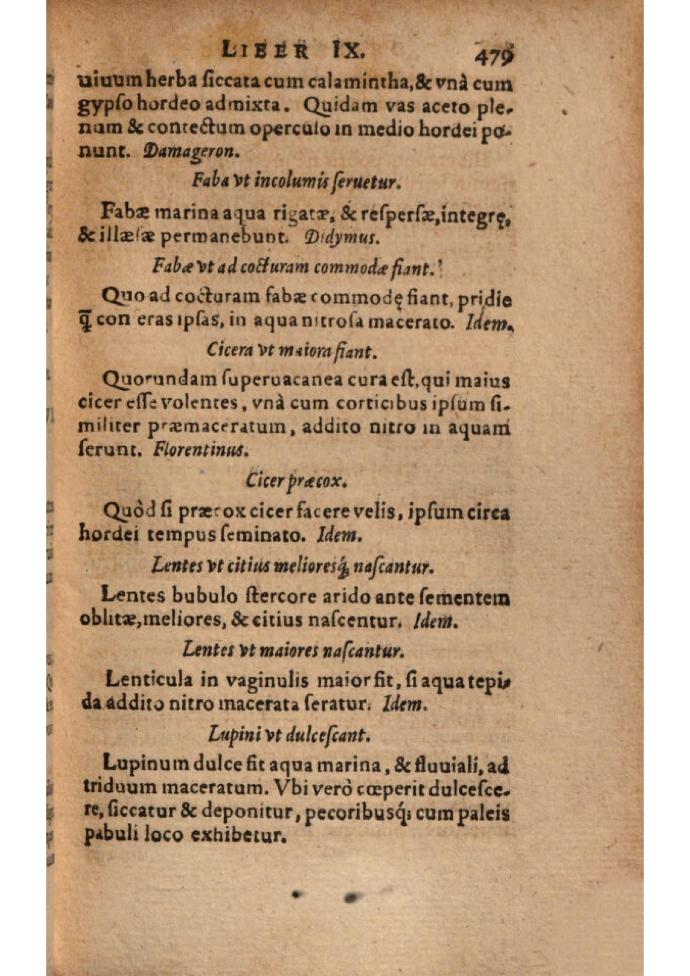 LIBER IX. 479
uiuum herba ſiccata cum calamintha, & vnà cum
gypſo hordeo admixta. Quidam vas aceto ple-
num & contectum operculo in medio hordei po-
nunt. Damageron.
Faba vt incolumis ſeruetur.
Fabæ marina aqua rigatæ, & reſperſæ, integrę,
& illæſæ permanebunt. Didymus.
Fabæ vt ad cocturam commodæ fiant.
Quo ad cocturam fabæ commodę fiant, pridie
q̃ con eras ipſas, in aqua nitroſa macerato. Idem.
Cicera vt maiora fiant.
Quorundam ſuperuacanea cura eſt, qui maius
cicer eſſe volentes, vnà cum corticibus ipſum ſi-
militer præmaceratum, addito nitro in aquam
ſerunt. Florentinus.
Cicer præcox.
Quòd ſi præcox cicer facere velis, ipſum circa
hordei tempus ſeminato. Idem.
Lentes vt citius melioresq́; naſcantur.
Lentes bubulo ſtercore arido ante ſementem
oblitæ, meliores, & citius naſcentur. Idem.
Lentes vt maiores naſcantur.
Lenticula in vaginulis maior fit, ſi aqua tepi-
da addito nitro macerata ſeratur. Idem.
Lupini vt dulceſcant.
Lupinum dulce fit aqua marina, & fluuiali, ad
triduum maceratum. Vbi verò cœperit dulceſce-
re, ſiccatur & deponitur, pecoribusq́; cum paleis
pabuli loco exhibetur.